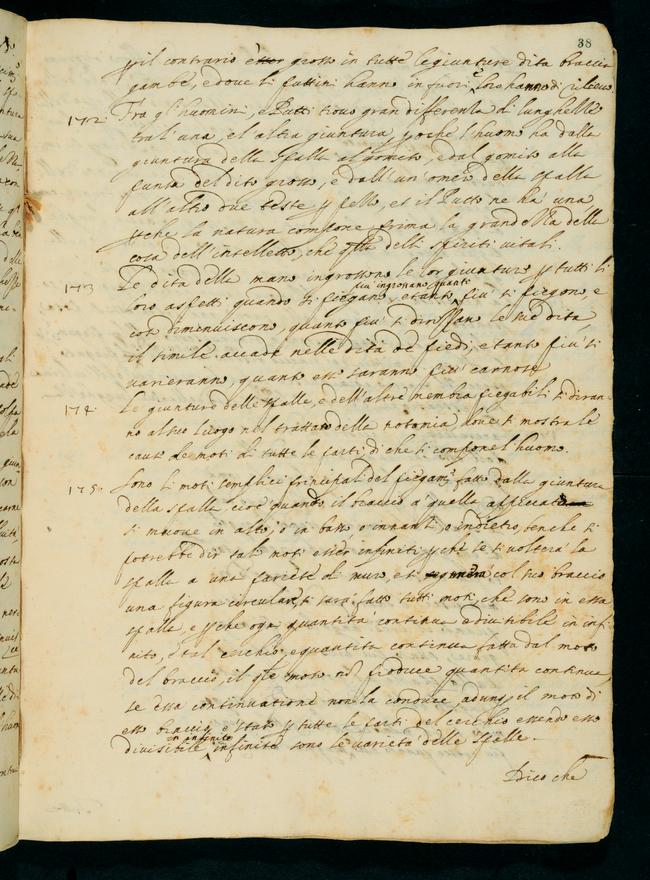 38
p il contrario grosso in tutte le giunture dita braccia
gambe, e dove li puttini hanno in fuori, loro hanno di rilievo.
172 Tra gl'huomini, e Putti trovo gran differenza di lunghezze
tra l'una, e l'altra giuntura, pche l'huomo ha dalla
giuntura della spalla al gomito, e dal gomito alla
punta del dito grosso, e dall'un omero della spalla
all'altro due teste p pezzo, et il Putto ne ha una
pche la natura compone prima la grandezza della
casa dell'intelletto, che qlla delli spiriti vitali.
173 Le dita della mano ingrossono le lor giunture p tutti li
più ingrossano quanto
loro aspetti quando si piegano, e tanto più si piegono, e
così diminuiscono, quanto più si dirizzan le sue dita,
il simile accade nelle dita de piedi, e tanto più si
varieranno, quanto esse saranno più carnose
174 Le giunture delle spalle, e dell'altre membra piegabili si diran-
no al suo luogo nel trattato della notomia, dove si mostra le
cause de moti di tutte le parti di che si compone l'huomo.
175 Sono li moti semplici principali del piegam.to fatto dalla giuntura
della spalla, cioè quando il braccio a quella
si move in alto, o in basso, o innanti, o indietro, benche si
potrebbe dir tali moti esser infiniti pche se si volterà la
spalla a una pariete di muro, et si col suo braccio
una figura circulare, si sarà fatto tutti moti, che sono in essa
spalla, e pche ogni quantità continua è divisibile in infi-
nito, e tal cerchio, e quantità continua fatta dal moto
del braccio, il qle moto nō produce quantità continua,
se essa continuatione non la conduce, adunq il moto di
esso braccio è stato p tutte le parti del cerchio essendo esso
in infinito
divisibile infinite sono le varietà delle spalle.
Dico che